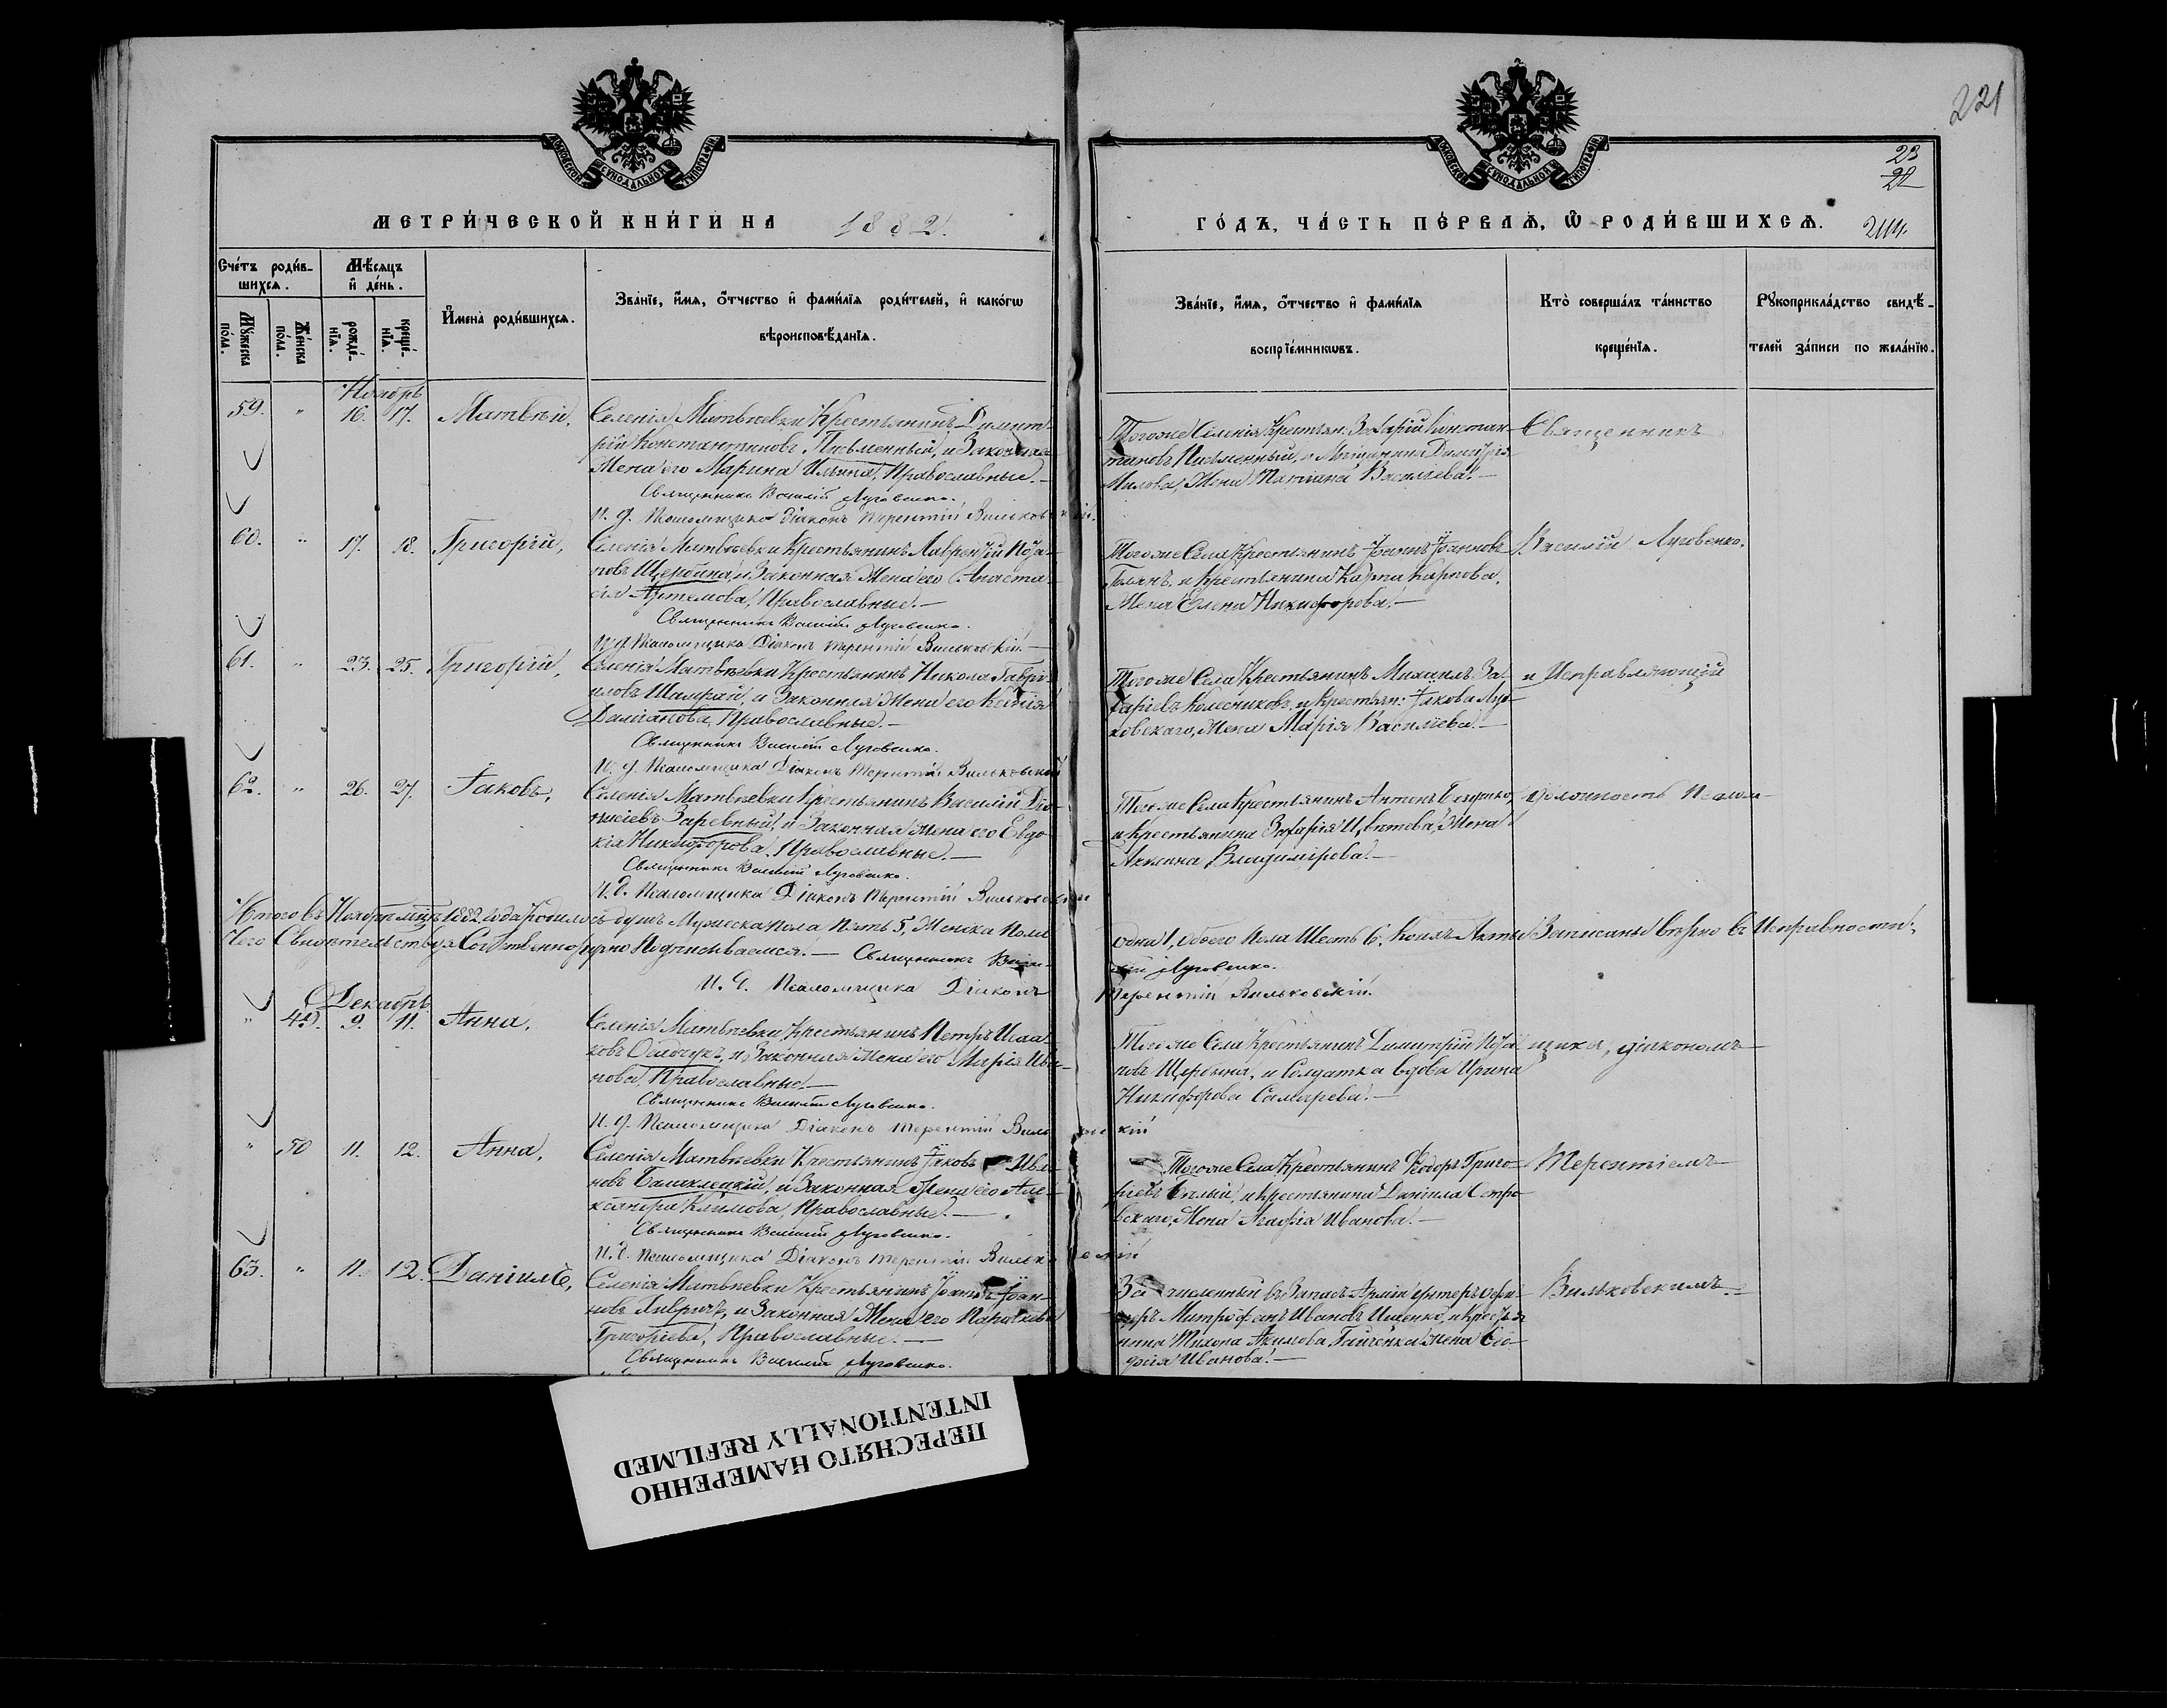 221
23
22
МЕТРИ́ЧЕСКОЙ КНИ́ГИ НА 1882.
ГО́ДЪ, ЧА́СТЬ ПЕ́РВАЯ, Ѿ РОДИ́ВШИХСЯ.
МОСКОВСКОЙ СУНОДАЛЬНОЙ ТИПОГРАФІИ
МОСКОВСКОЙ СУНОДАЛЬНОЙ ТИПОГРАФІИ
Сче́тъ роди́в-
шихся.
Мѣ́сяцъ
и де́нь.
Му́жеска
по́ла.
Же́нска
по́ла.
рожде́-
нія.
креще́-
нія.
Имена̀ роди́вшихся.
Зва́ніе, и́мя, о́тчество и фами́лія роди́телей, и како́гѡ
вѣроисповѣ́данія.
Зва́ніе, и́мя, о́тчество и фами́лія
воспріе́мниковъ.
Кто̀ соверша́лъ та́инство
креще́нія.
Рукоприкла́дство свидѣ́-
телей за́писи по жела́нію.
Ноябрь
59. " 16. 17. Матвѣй,
Селенія Матвѣевки Крестьянинъ Димит-
рій Константиновъ Письменный, и Законная
Жена его Марина Ильина, Православные.-
Священникъ Василій Луговенко.
И. д. Псаломщика Діаконъ Терентій Вильковскій.
Тогоже Селенія Крестьян: Захарій Констан-
тиновъ Письменный, и Мещанина Димитрія
Милова, Жена Татіана Васильева.-
Священникъ
60. " 17. 18. Григорій,
Селенія Матвѣевки Крестьянинъ Лаврентій Пота-
повъ Щербина, и Законная Жена его Анаста-
сія Артемова, Православные.-
Священникъ Василій Луговенко.
И. д. Псаломщика Діаконъ Терентій Вильковскій.
Тогоже Села Крестьянинъ Іоаннъ Іоанновъ
и Крестьянина Карпа Карпова,
Жена Елена Никифорова.-
Василій Луговенко.
61. " 23. 25. Григорій,
Селенія Матвѣевки Крестьянинъ Никола Гаврі-
иловъ Шамрай, и Законная Жена его Ксенія
Даміанова, Православные.-
Священникъ Василій Луговенко.
И. д. Псаломщика Діаконъ Терентій Вильковскій
Тогоже Села Крестьянинъ Михаилъ За-
харіевъ Колесниковъ, и Крестьян: Іакова Лус-
ковскаго, Жена Марія Васильева.-
и Исправляющій
62. " 26. 27. Іаковъ,
Селенія Матвѣевки Крестьянинъ Василій Діо-
нисіевъ Заревный, и Законная Жена его Евдо-
кія Никифорова, Православные.-
Священникъ Василій Луговенко.
И. д. Псаломщика Діаконъ Терентій Вильковскій
Тогоже Села Крестьянинъ Антонъ
и Крестьянина Захарія Жена
Акилина Владимірова.-
должность Псалом-
Итого въ Ноябрѣ мцѣ 1882 года Родилось душъ Мужеска пола Пять 5, Женска Пола
одна 1, обоего Пола Шесть 6. Коихъ Акты Записаны вѣрно въ Исправности,
Чего Свидѣтельствуя Собственноручно Подписываемся.- Священникъ Васи-
лій Луговенко.
И. д. Псаломщика Діаконъ
Терентій Вильковскій.
Декабрь
" 49. 9. 11. Анна,
Селенія Матвѣевки Крестьянинъ Петръ Исаа-
ковъ и Законная Жена его Марія Ива-
нова, Православные.-
Священникъ Василій Луговенко.
И. д. Псаломщика Діаконъ Терентій Вильковскій
Тогоже Села Крестьянинъ Димитрій Пота-
повъ Щербина, и Солдатка вдова Ирина
Никифорова Самарева.-
щика, діакономъ
" 50 11. 12. Анна,
Селенія Матвѣевки Крестьянинъ Іаковъ Ива-
новъ Балаклецкій, и Законная Жена его Але-
ксандра Климова, Православные.-
Священникъ Василій Луговенко.
И. д. Псаломщика Діаконъ Терентій Вильковскій
Тогоже Села Крестьянинъ Ѳеодоръ Григо-
ріевъ Бѣлый, и Крестьянина Даніила Остро-
вскаго, Жена Агафія Иванова.-
Терентіемъ
63. " 11. 12. Даніилъ,
Селенія Матвѣевки Крестьянинъ Іоаннъ Іоан-
новъ и Законная Жена его Параскева
Григоріева, Православные.-
Священникъ Василій Луговенко.
Зачисленный въ Запасъ Арміи Унтеръ офи-
церъ Митрофанъ Ивановъ Ищенко, и Кресть-
янина Тихона Акимова Гайченка Жена Ев-
фосія Иванова.-
Вильковскимъ.-
ПЕРЕСНЯТО НАМЕРЕННО
INTENTIONALLY REFILMED